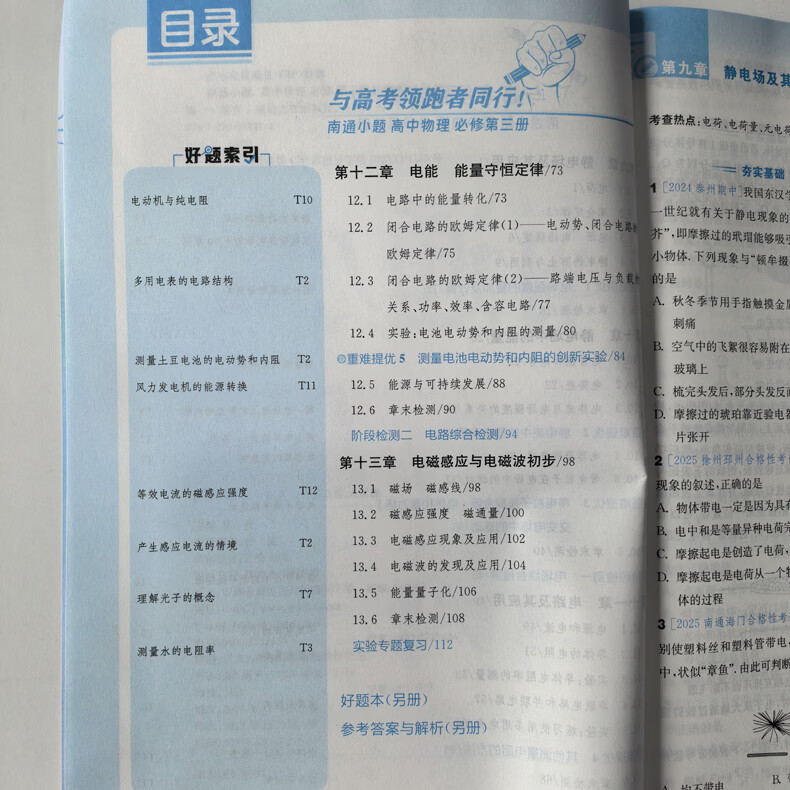 目录
与高考领跑者同行!
南通小题 高中物理 必修第三册
好题索引
电动机与纯电阻 T10
多用电表的电路结构 T2
测量土豆电池的电动势和内阻 T2
风力发电机的能源转换 T11
等效电流的磁感应强度 T12
产生感应电流的情境 T2
理解光子的概念 T7
测量水的电阻率 T3
第十二章 电能 能量守恒定律/73
12.1 电路中的能量转化/73
12.2 闭合电路的欧姆定律(1)——电动势、闭合电路的
欧姆定律/75
12.3 闭合电路的欧姆定律(2)——路端电压与负载的
关系、功率、效率、含容电路/77
12.4 实验:电池电动势和内阻的测量/80
重难提优5 测量电池电动势和内阻的创新实验/84
12.5 能源与可持续发展/88
12.6 章末检测/90
阶段检测二 电路综合检测/94
第十三章 电磁感应与电磁波初步/98
13.1 磁场 磁感线/98
13.2 磁感应强度 磁通量/100
13.3 电磁感应现象及应用/102
13.4 电磁波的发现及应用/104
13.5 能量量子化/106
13.6 章末检测/108
实验专题复习/112
好题本(另册)
参考答案与解析(另册)
第九章 静电场及其
考查热点:电荷、电荷量、元电荷
夯实基础
1 [2024 泰州期中]我国东汉学
一世纪就有关于静电现象的
芥”,即摩擦过的玳瑁能够吸引
小物体.下列现象与“顿牟掇
的是
A. 秋冬季节用手指触摸金属
刺痛
B. 空气中的飞絮很容易附在
玻璃上
C. 梳完头发后,部分头发反而
D. 摩擦过的琥珀靠近验电器
片张开
2 [2025 徐州邳州合格性考试
现象的叙述,正确的是
A. 物体带电一定是因为具有
B. 电中和是等量异种电荷完
C. 摩擦起电是创造了电荷,
D. 摩擦起电是电荷从一个物
体的过程
3 [2025 南通海门合格性考试
别使塑料丝和塑料管带电,
中,状似“章鱼”.由此可判断
A. 均不带电 B.